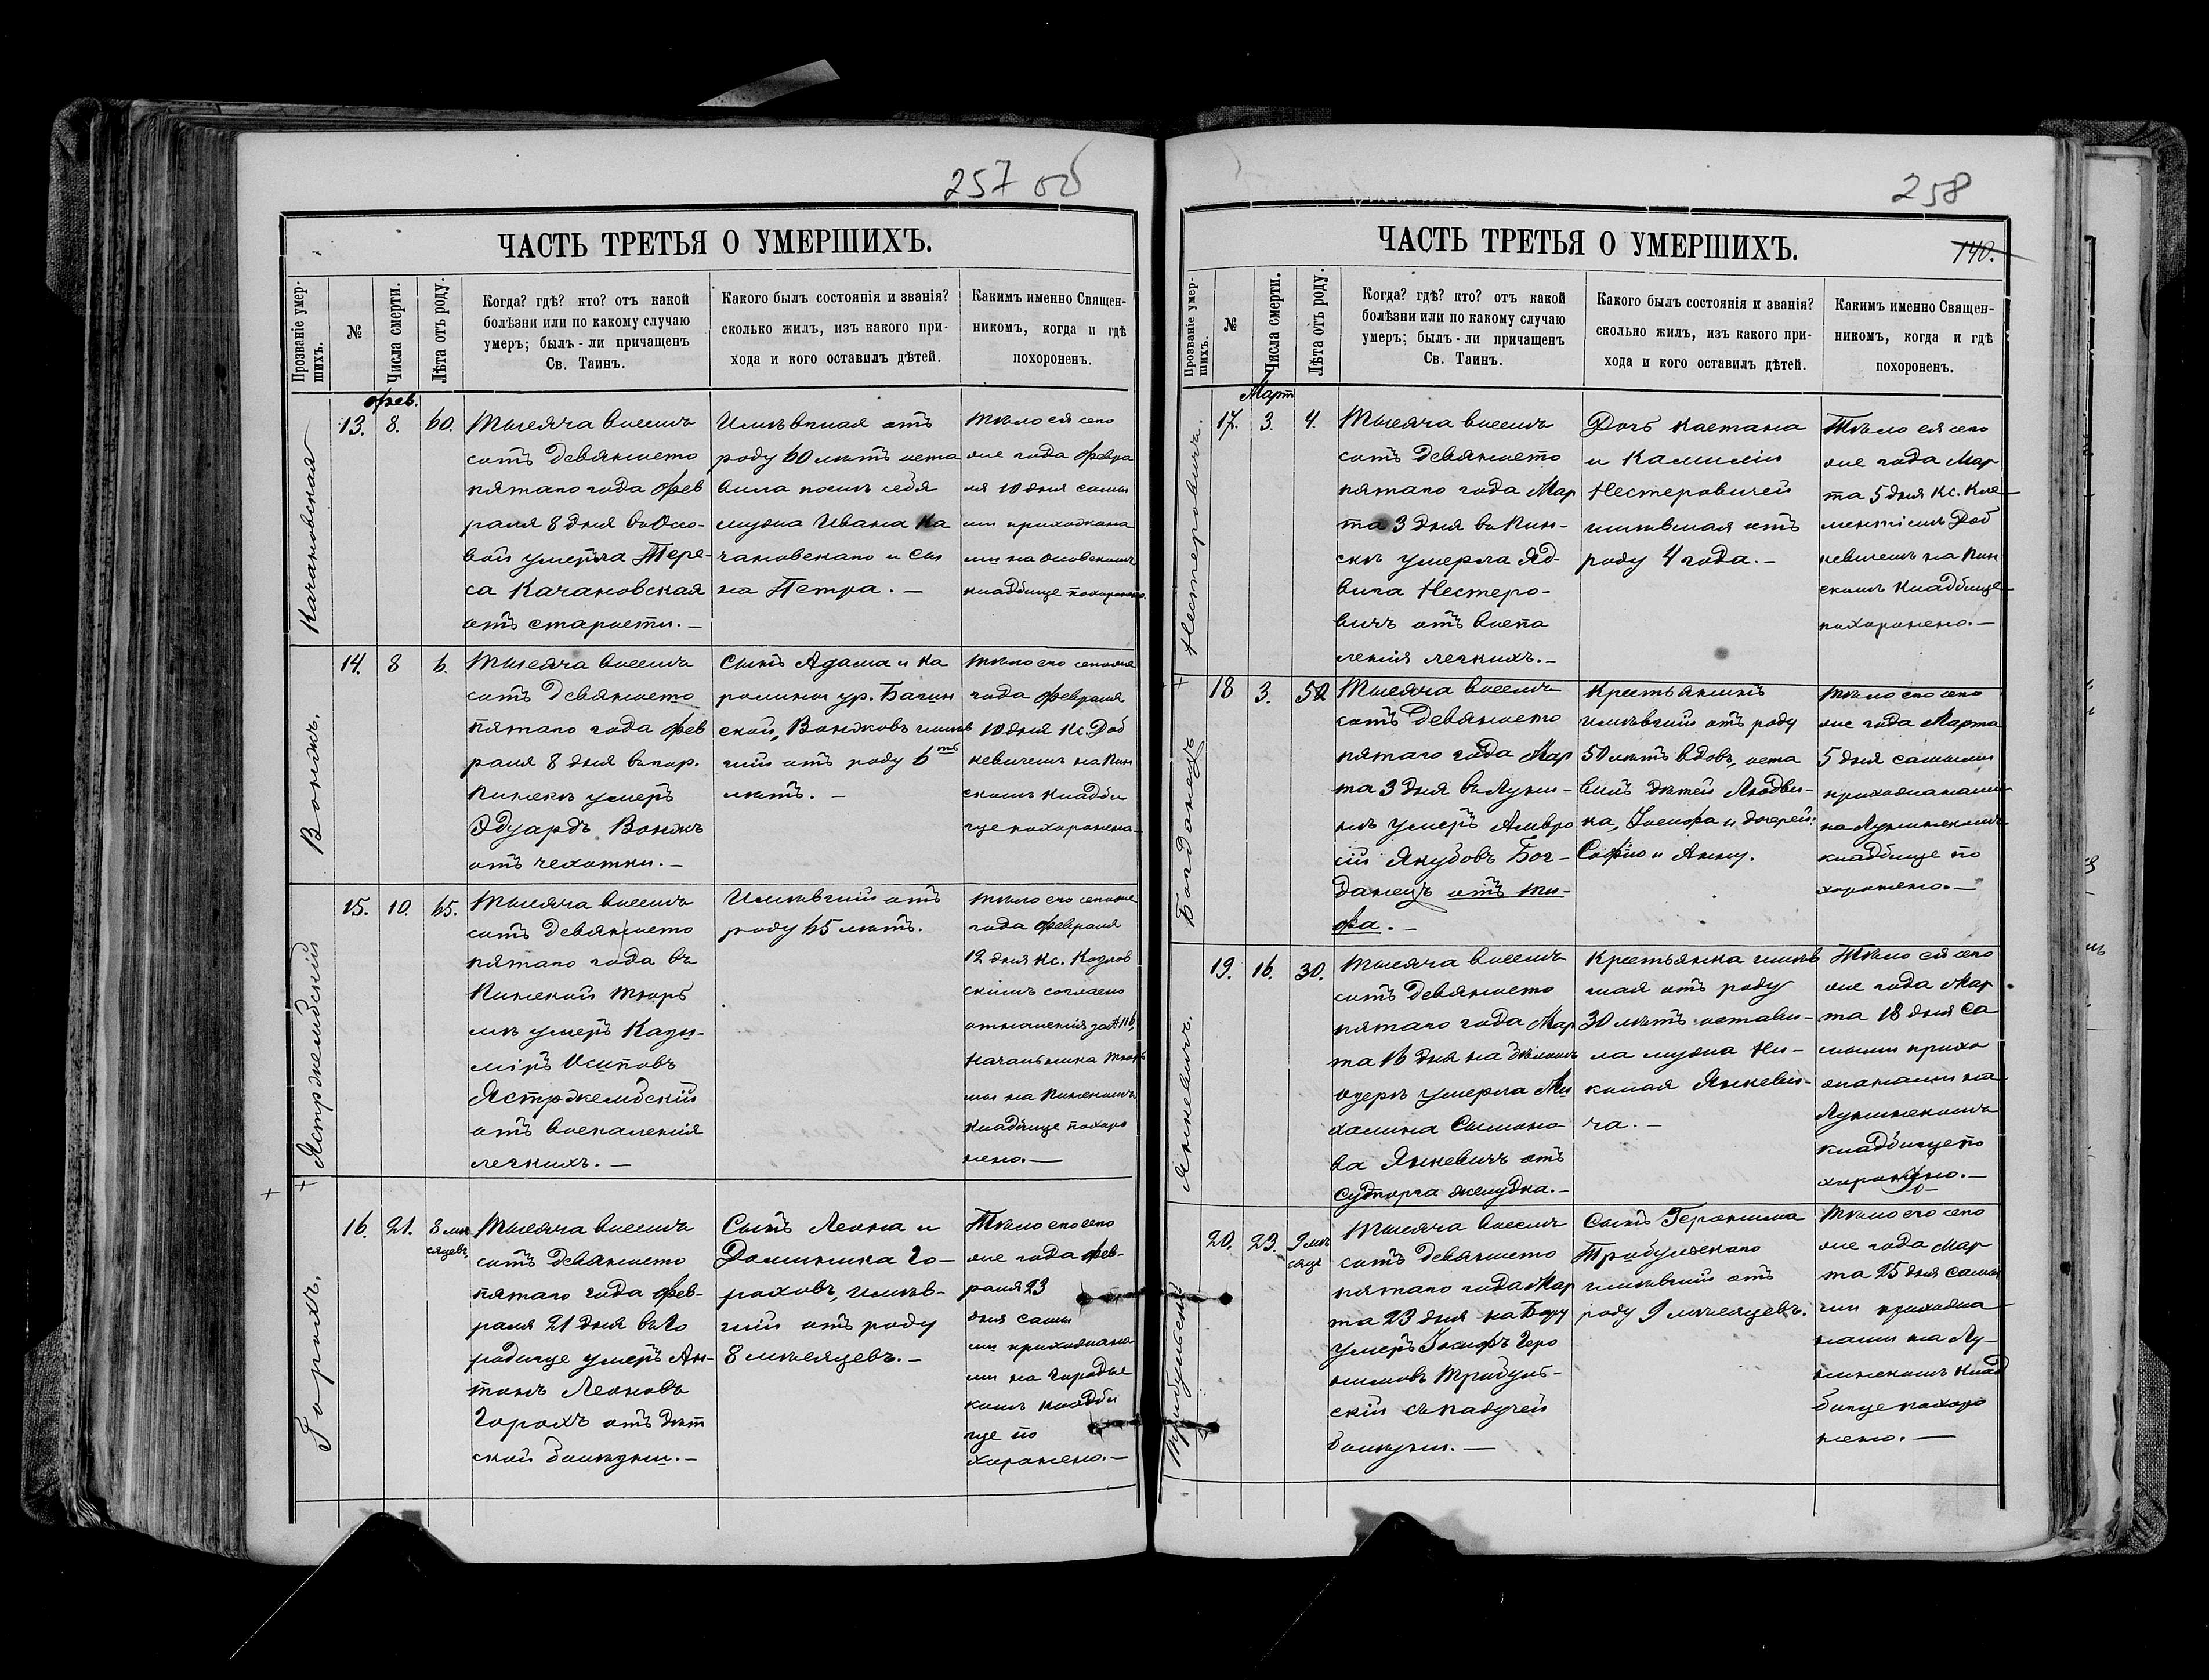 257 об
ЧАСТЬ ТРЕТЬЯ О УМЕРШИХЪ.
Прозваніе умер-
шихъ.
№
Числа смерти.
Лѣта отъ роду.
Когда? гдѣ? кто? отъ какой
болѣзни или по какому случаю
умеръ; былъ-ли причащенъ
Св. Таинъ.
Какого былъ состоянія и званія?
сколько жилъ, изъ какого при-
хода и кого оставилъ дѣтей.
Какимъ именно Священ-
никомъ, когда и гдѣ
похороненъ.
Фев.
Качановская
13.
8.
60.
Тысяча восемь
сотъ девяносто
пятаго года Фев
раля 8 дня въ Осо-
вой умерла Тере-
са Качановская
отъ старости.—
Имѣвшая отъ
роду 60 лѣтъ оста
вила послѣ себя
мужа Ивана Ка
чановскаго и сы
на Петра.—
Тѣло ея сего
же года Февра
ля 10 дня самы
ми прихожана
ми на Осовскомъ
кладбище похоронено.
Вонжъ.
14.
8
6.
Тысяча восемь
сотъ девяносто
пятаго года Фев
раля 8 дня въ гор.
Пинскѣ умеръ
Эдуардъ Вонжъ
отъ чахотки.—
Сынъ Адама и Ка
ролины ур. Багин
ской, Вонжовъ имѣв
шій отъ роду 6ть
лѣтъ.—
Тѣло его сего же
года Февраля
10 дня Кс. Доб
кевичемъ на Пин
скомъ кладби
ще похоронено—
Ястржембскій
15.
10.
65.
Тысяча восемь
сотъ девяносто
пятаго года въ
Пинской тюрь
мѣ умеръ Кази-
міръ Осиповъ
Ястржембскій
отъ воспаленія
легкихъ.—
Имѣвшій отъ
роду 65 лѣтъ.
Тѣло его сего же
года Февраля
12 дня Кс. Козлов
скимъ согласно
отношенія за № 116
Начальника тюрь
мы на Пинскомъ
кладбище похоро
нено.—
Горохъ.
16.
21.
8 мѣ
сяцевъ
Тысяча восемь
сотъ девяносто
пятаго года Фев-
раля 21 дня въ Го
родище умеръ Ан-
тонъ Леоновъ
Горохъ отъ дѣт
ской болѣзни.—
Сынъ Леона и
Доминика Го-
роховъ, имѣв-
шій отъ роду
8 мѣсяцевъ.—
Тѣло его сего
же года Фев-
раля 23
дня самы
ми прихожана
ми на Городис
комъ кладби
ще по
хоронено.—
258
ЧАСТЬ ТРЕТЬЯ О УМЕРШИХЪ.
140.
Прозваніе умер-
шихъ.
№
Числа смерти.
Лѣта отъ роду.
Когда? гдѣ? кто? отъ какой
болѣзни или по какому случаю
умеръ; былъ-ли причащенъ
Св. Таинъ.
Какого былъ состоянія и званія?
сколько жилъ, изъ какого при-
хода и кого оставилъ дѣтей.
Какимъ именно Священ-
никомъ, когда и гдѣ
похороненъ.
Март
Нестеровичъ.
17.
3.
4.
Тысяча восемь
сотъ девяносто
пятаго года Мар
та 3 дня въ Пин-
скѣ умерла Яд-
вига Нестеро-
вичъ отъ воспа
ленія легкихъ.—
Дочь Каетана
и Камиліи
Нестеровичей
имѣвшая отъ
роду 4 года.—
Тѣло ея сего
же года Мар
та 5 дня Кс. Кле
ментіемъ Доб
кевичемъ на Пин
скомъ кладбище
похоронено.—
Богданецъ
18
3.
50
Тысяча восемь
сотъ девяносто
пятаго года Мар
та 3 дня въ Луни-
нѣ умеръ Амвро
сій Якубовъ Бог-
данецъ отъ ти-
фа.—
Крестьянинъ
имѣвшій отъ роду
50 лѣтъ вдовъ, оста
вилъ дѣтей Людви-
ка, Іосифа и дочерей:
Софію и Анну.
Тѣло его сего
же года Марта
5 дня самыми
прихожанами
на Лунинскомъ
кладбище по
хоронено.—
Янкевичъ.
19.
16.
30.
Тысяча восемь
сотъ девяносто
пятаго года Мар
та 16 дня на Бѣломъ
озерѣ умерла Ми
халина Сымоно
ва Янкевичъ отъ
судторга желудка.—
Крестьянка имѣв
шая отъ роду
30 лѣтъ остави-
ла мужа Ни-
колая Янкеви-
ча.—
Тѣло ея сего
же года Мар
та 18 дня са
мыми прихо
жанами на
Лунинскомъ
кладбище по
хоронено.—
Трибульскій
20.
23.
9 мѣ
сяце
Тысяча восемь
сотъ девяносто
пятаго года Мар
та 23 дня на Бору
умеръ Іосифъ Геро
нимовъ Трибуль-
скій съ падучей
болѣзни.—
Сынъ Геронима
Трибульскаго
имѣвшій отъ
роду 9 мѣсяцевъ.
Тѣло его сего
же года Мар
та 25 дня самы
ми прихожа
нами на Лу-
нинскомъ клад
бище похоро
нено.—